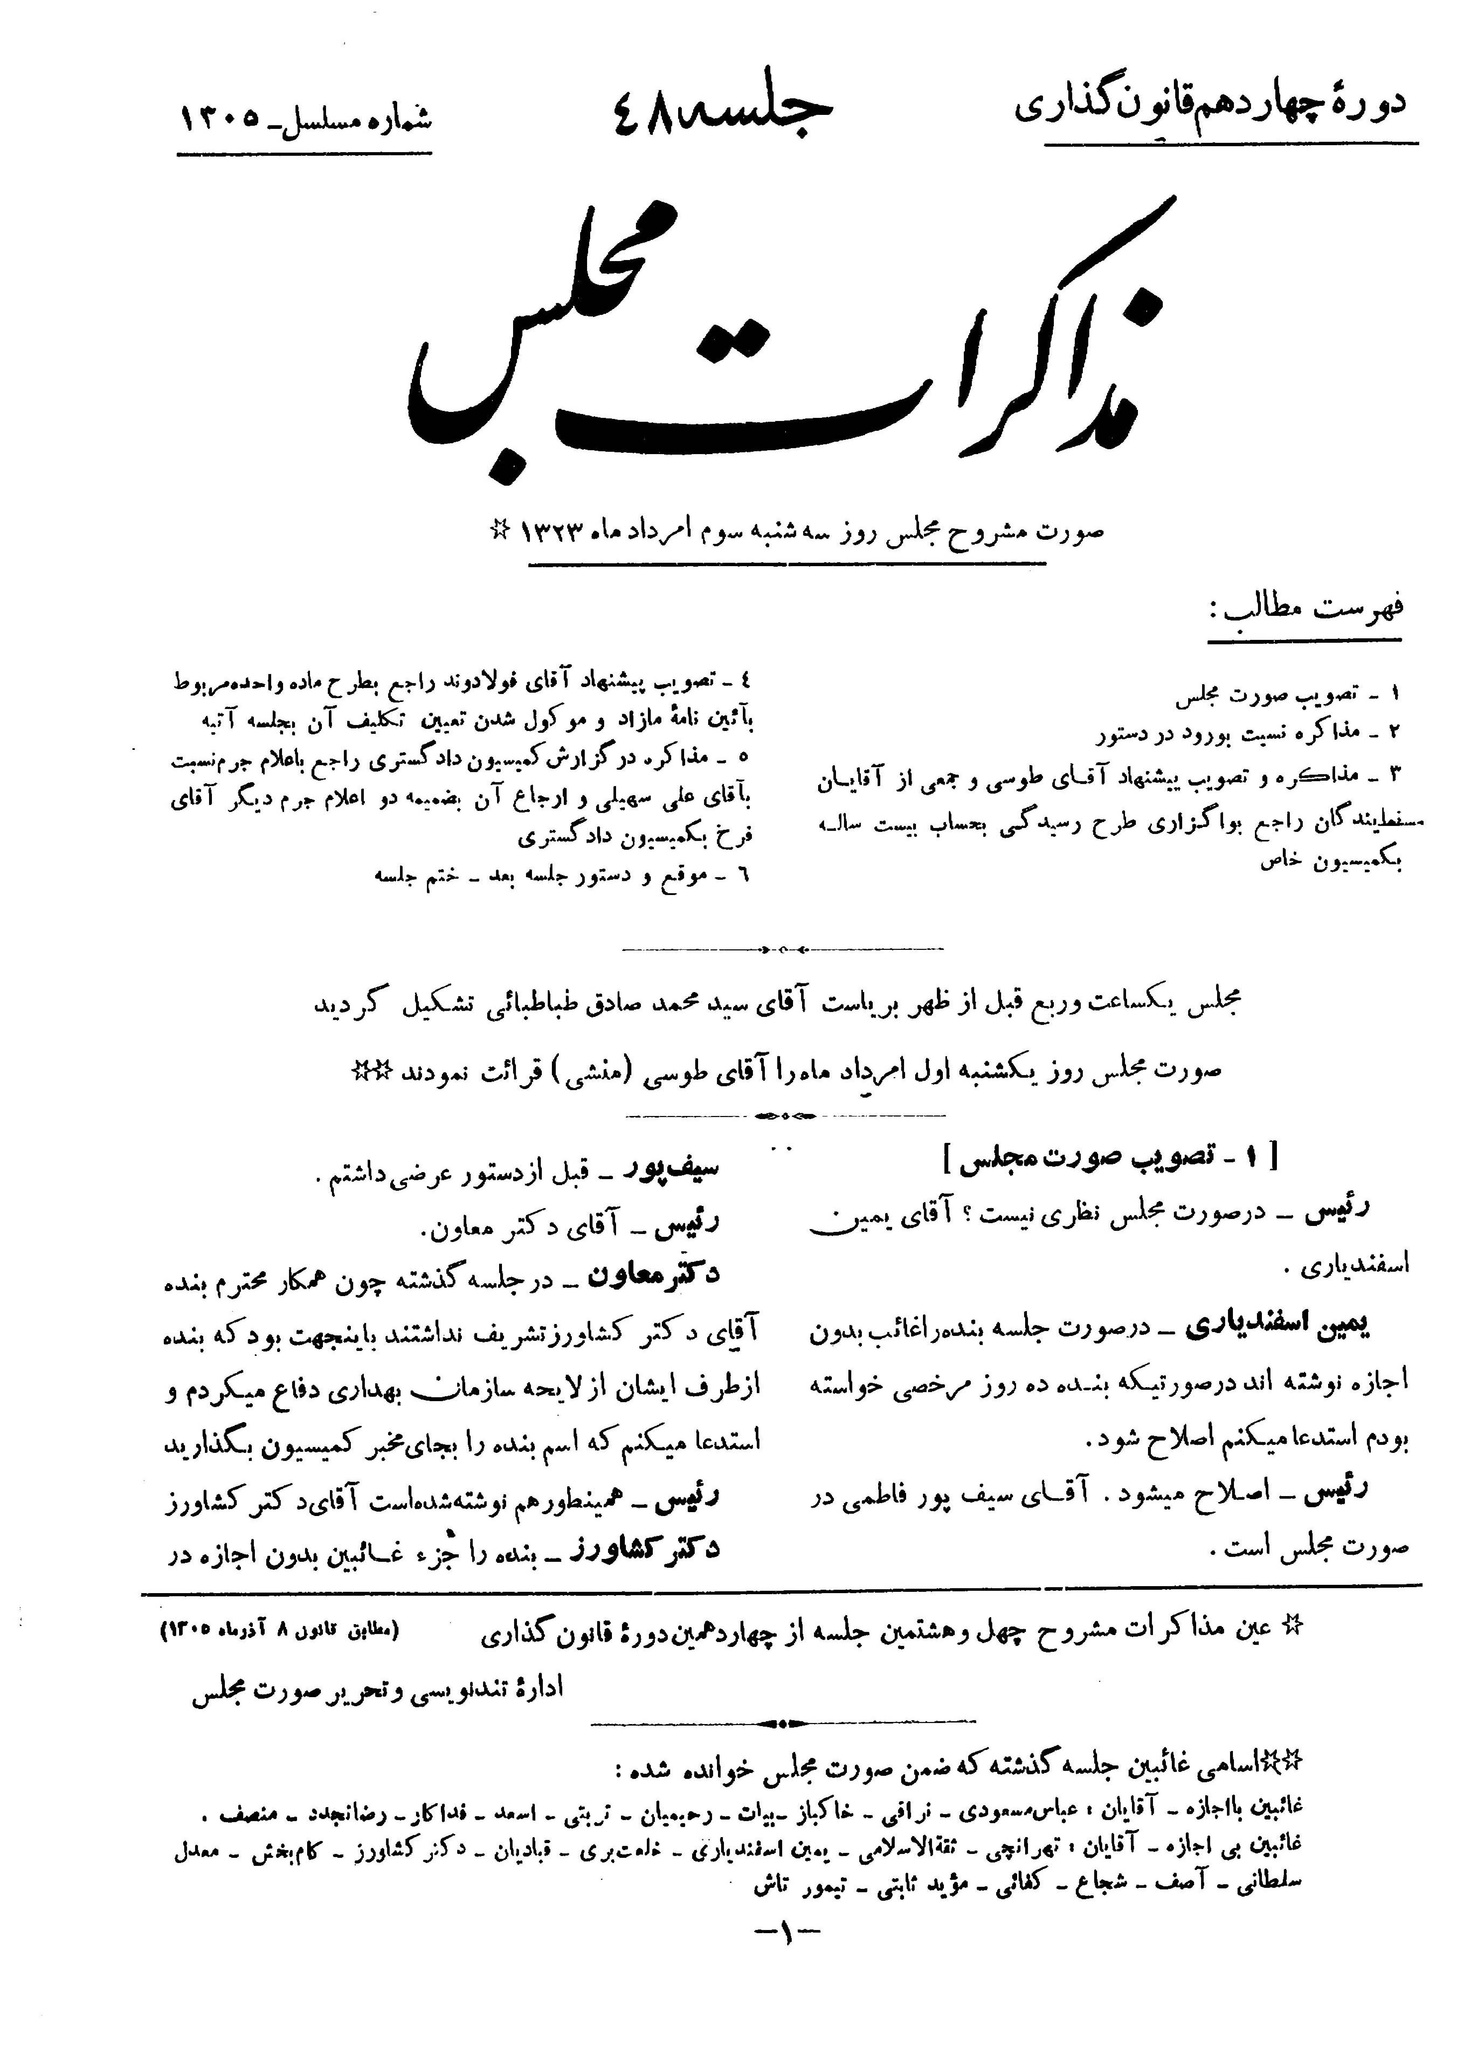 دورهٔ چهاردهم قانون‌گذاری
جلسه ٤٨
شماره مسلسل ـ ١٣٠٥
مذاکرات مجلس
صورت مشروح مجلس روز سه شنبه سوم امرداد ماه ١٣٢٣ ☆
فهرست مطالب :
١ ـ تصویب صورت مجلس
٢ ـ مذاکره نسبت بورود در دستور
٣ ـ مذاکره و تصویب پیشنهاد آقای طوسی و جمعی از آقایان
نمایندگان راجع بواگزاری طرح رسیدگی بحساب بیست ساله
بکمیسیون خاص
٤ ـ تصویب پیشنهاد آقای فولادوند راجع بطرح ماده واحده مربوط
بآئین نامهٔ مازاد و موکول شدن تعیین تکلیف آن بجلسه آتیه
٥ ـ مذاکره در گزارش کمیسیون دادگستری راجع باعلام جرم نسبت
بآقای علی سهیلی و ارجاع آن بضمیمه دو اعلام جرم دیگر آقای
فرخ بکمیسیون دادگستری
٦ ـ موقع و دستور جلسه بعد ـ ختم جلسه
مجلس یکساعت و ربع قبل از ظهر بریاست آقای سید محمد صادق طباطبائی تشکیل گردید
صورت مجلس روز یکشنبه اول امرداد ماه را آقای طوسی (منشی) قرائت نمودند ☆☆
[ ١ ـ تصویب صورت مجلس ]
رئیس ـ درصورت مجلس نظری نیست ؟ آقای یمین
اسفندیاری .
یمین اسفندیاری ـ درصورت جلسه بنده را غائب بدون
اجازه نوشته اند درصورتیکه بنده ده روز مرخصی خواسته
بودم استدعا میکنم اصلاح شود.
رئیس ـ اصلاح میشود . آقای سیف پور فاطمی در
صورت مجلس است .
سیف پور ـ قبل از دستور عرضی داشتم .
رئیس ـ آقای دکتر معاون.
دکتر معاون ـ در جلسه گذشته چون همکار محترم بنده
آقای دکتر کشاورز تشریف نداشتند باینجهت بود که بنده
از طرف ایشان از لایحه سازمان بهداری دفاع میکردم و
استدعا میکنم که اسم بنده را بجای مخبر کمیسیون بگذارید
رئیس ـ همینطور هم نوشته شده است آقای دکتر کشاورز
دکتر کشاورز ـ بنده را جزء غائبین بدون اجازه در
☆ عین مذاکرات مشروح چهل و هشتمین جلسه از چهاردهمین دورهٔ قانون گذاری (مطابق قانون ٨ آذر ماه ١٣٠٥)
ادارهٔ تندنویسی و تحریر صورت مجلس
☆☆ اسامی غائبین جلسه گذشته که ضمن صورت مجلس خوانده شده :
غائبین بااجازه ـ آقایان : عباس مسعودی ـ نراقی ـ خاکباز ـ بیات ـ رحیمیان ـ تربتی ـ اسعد ـ فداکار ـ رضا تجدد ـ منصف .
غائبین بی اجازه ـ آقایان : تهرانچی ـ ثقةالاسلامی ـ یمین اسفندیاری ـ خلعت بری ـ قبادیان ـ دکتر کشاورز ـ کام بخش ـ معدل
سلطانی ـ آصف ـ شجاع ـ کفائی ـ مؤید ثابتی ـ تیمور تاش
ـ١ـ